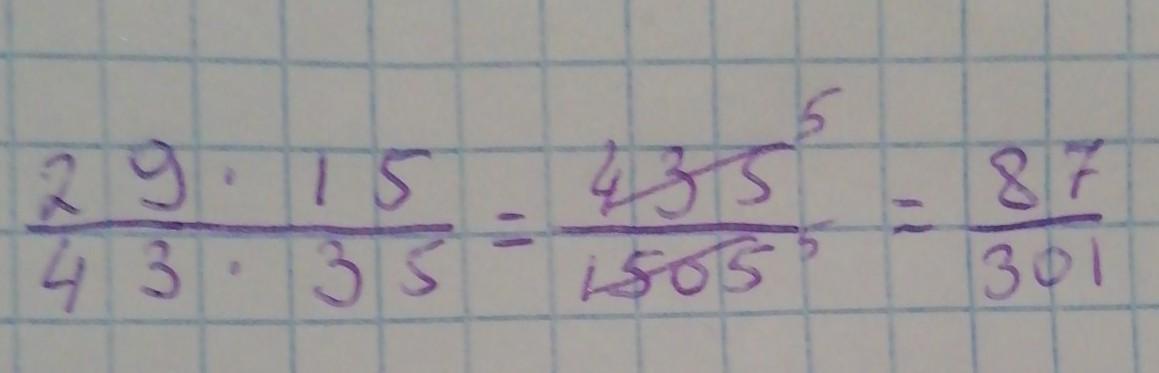 29 · 15 / 43 · 35 = 435 5 / 1505 5 = 87 / 301